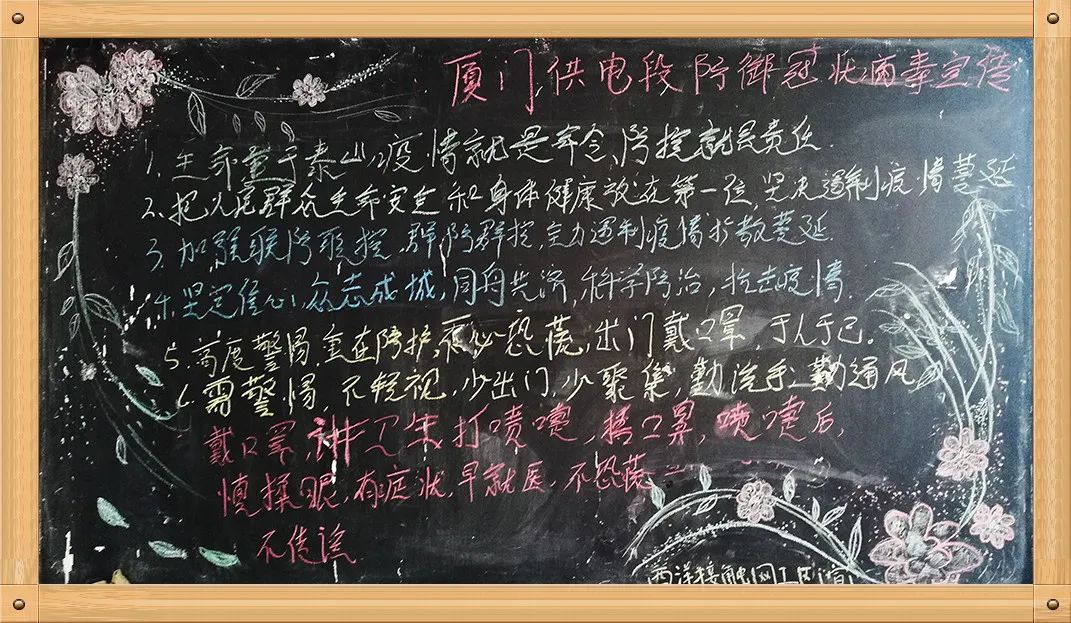 厦门供电段防御冠状病毒宣传
1.生命重于泰山,疫情就是命令,防控就是责任.
2.把人民群众生命安全和身体健康放在第一位,坚决遏制疫情蔓延
3.加强联防联控,群防群控,全力遏制疫情扩散蔓延.
4.坚定信心,众志成城,同舟共济,科学防治,抗击疫情.
5.高度警惕重在防护,不必恐慌,出门戴口罩,于人于己.
6.需警惕,不轻视,少出门,少聚集,勤洗手,勤通风
戴口罩,讲卫生打喷嚏,捂口罩,喷嚏后,
慎揉眼,有症状,早就医,不恐慌
不传谣
西洋接触网工区宣